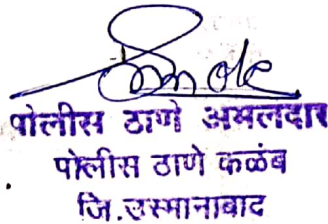 पोलीस ठाणे अमलदार
पोलीस ठाणे कळंब
जि.उस्मानाबाद